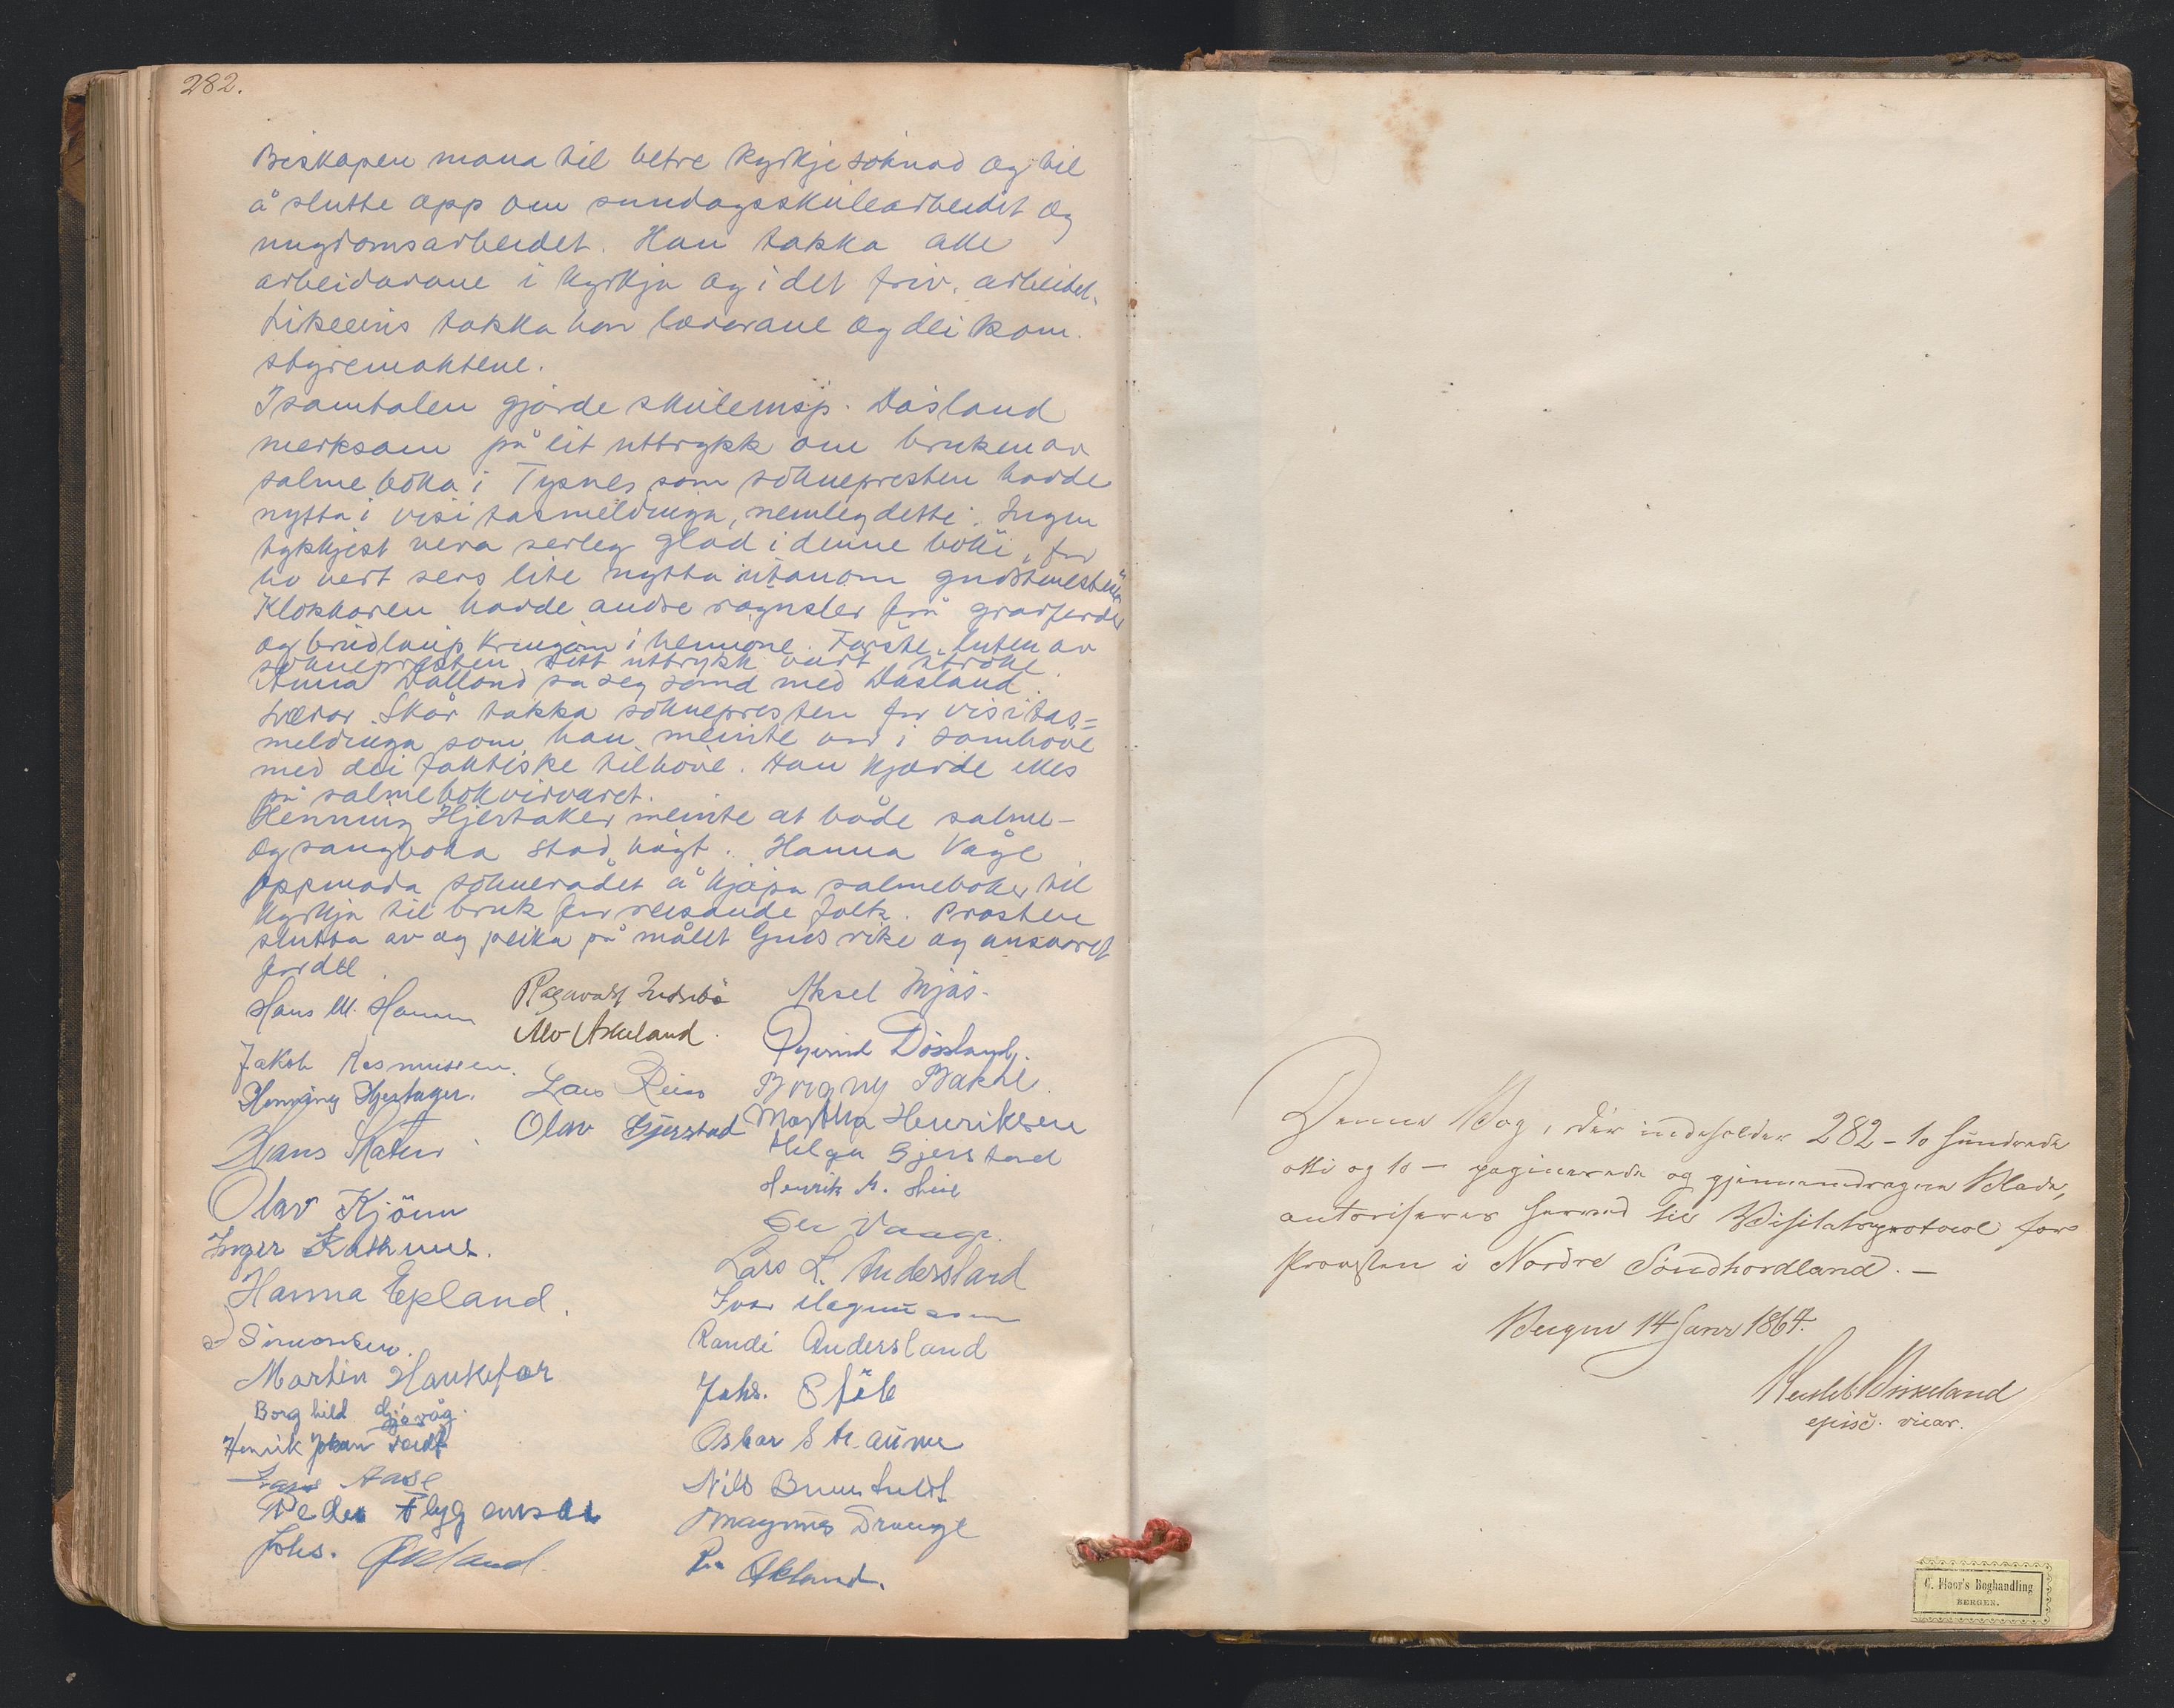 282.
Biskopen mana til betre kyrkjesøknad og til
å slutte opp om sundagsskulearbeidet og
ungdomsarbeidet. Han takka alle
arbeidarane i kyrkja og i det friv. arbeidet.
Likeeins takka han lærarane og dei kom.
styremaktene.
I samtalen gjorde skuleinsp. Dåsland
merksam på eit uttrykk om bruken av
salmeboka i Tysnes som sokneprestem hadde
nytta i visitasmeldinga, nemleg dette: Ingen
tykkjest vera serleg glad i denne boki, for
ho vert sers lite nytta utanom gudstenestene
Klokkaren hadde andre røynsler frå gravferder
og brudlaup kringom i heimone. Første luten av
soknepresten sitt uttrykk vart stroke.
Anna Dalland sa seg samd med Dåsland.
Lærar Skår takka soknepresten for visitas=
meldinga som han meinte var i samhøve
med dei faktiske tilhøve. Han kjærde elles
på salmebokvirvaret.
Henning Hjertaker meinte at både salme-
og sangboka stod høgt. Hanna Våge
oppmoda soknerådet å kjøpa salmebøker til
kyrkja til bruk for reisande folk. Prosten
slutta av og peika på målet Guds rike og ansvaret
for det.
Hans M. Hamm
Ragnvald Indrebø
Aksel Mjøs.
Alv Askeland.
Øyvind Dåsland.
Jakob Rasmussen.
Henning Hjertager.
Lars Reiso
Borgny Bakke.
Hans
Olav Gjerstad
Martha Henriksen
Helga Gjerstad
Henrik M.
Olav Kjönn
Vaage.
Inger
Lars L. Andersland
Hanna Epland.
Ivar Magnusson
Simonsen.
Randi Andersland
Martin Haukefær
Johs.
Borghild Gjøvåg.
Oskar Straume
Henrik Johan
Lars Aase
Nils Bruntveit
Peder Flygansvær
Magnus Drange
Johs. Økland
P. Økland.
Denne Bog, der indeholder 282 - to hundrede
otti og to - paginerede og gjennemdragne Blade,
autoriseres herved til Visitatsprotocol for
Provsten i Nordre Söndhordland. -
Bergen 14 Janr 1867.
Birkeland
episc. vicar.
C. Floor's Boghandling
BERGEN.